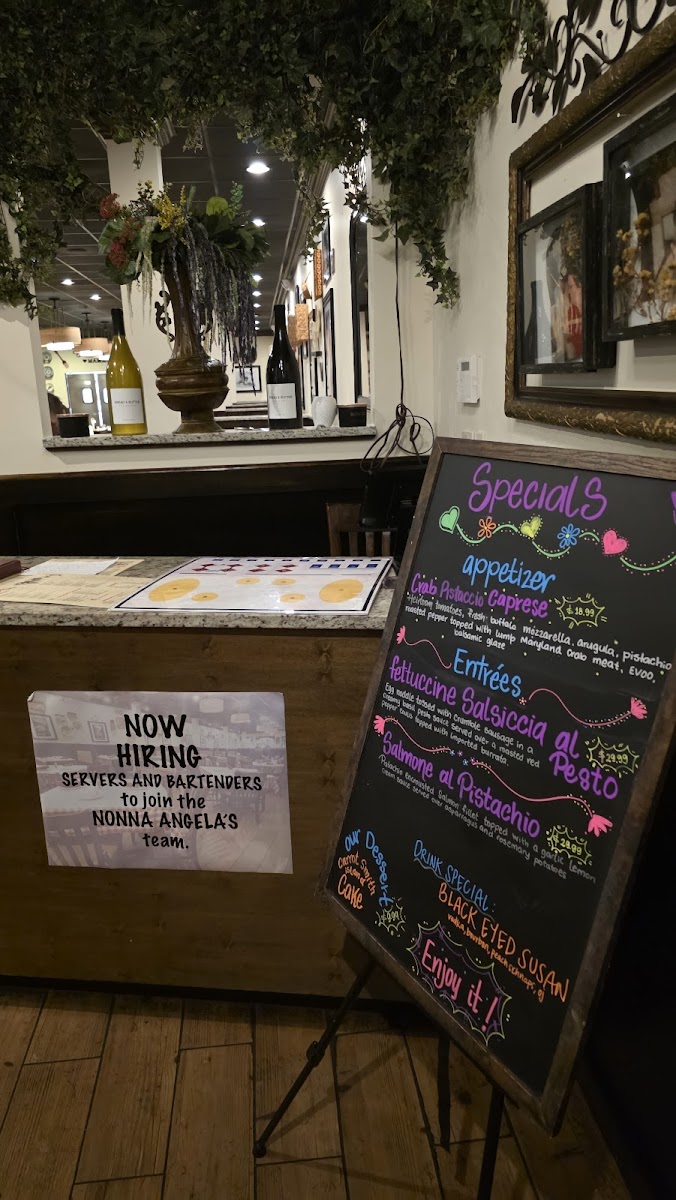 Specials
appetizer
Crab Pistaccio Caprese $18.99
Heirloom tomatoes, fresh buffalo mozzarella, arugula, pistachio
roasted pepper topped with lump Maryland crab meat, EVOO,
balsamic glaze
Entrées
fettuccine Salsiccia al
Pesto $29.99
Egg noodle tossed with crumble sausage in a
creamy basil pesto sauce served over a roasted red
pepper coulis topped with imported burrata.
Salmone al Pistachio
$29.99
Pistachio encrusted Salmon fillet topped with a garlic lemon
cream sauce served over asparagus and rosemary potatoes
Our Dessert
Carrot Smith
Island
Cake
$9.99
DRINK SPECIAL:
BLACK EYED SUSAN
vodka, bourbon, peach schnapps, oj
Enjoy it!
NOW
HIRING
SERVERS AND BARTENDERS
to join the
NONNA ANGELA'S
team.